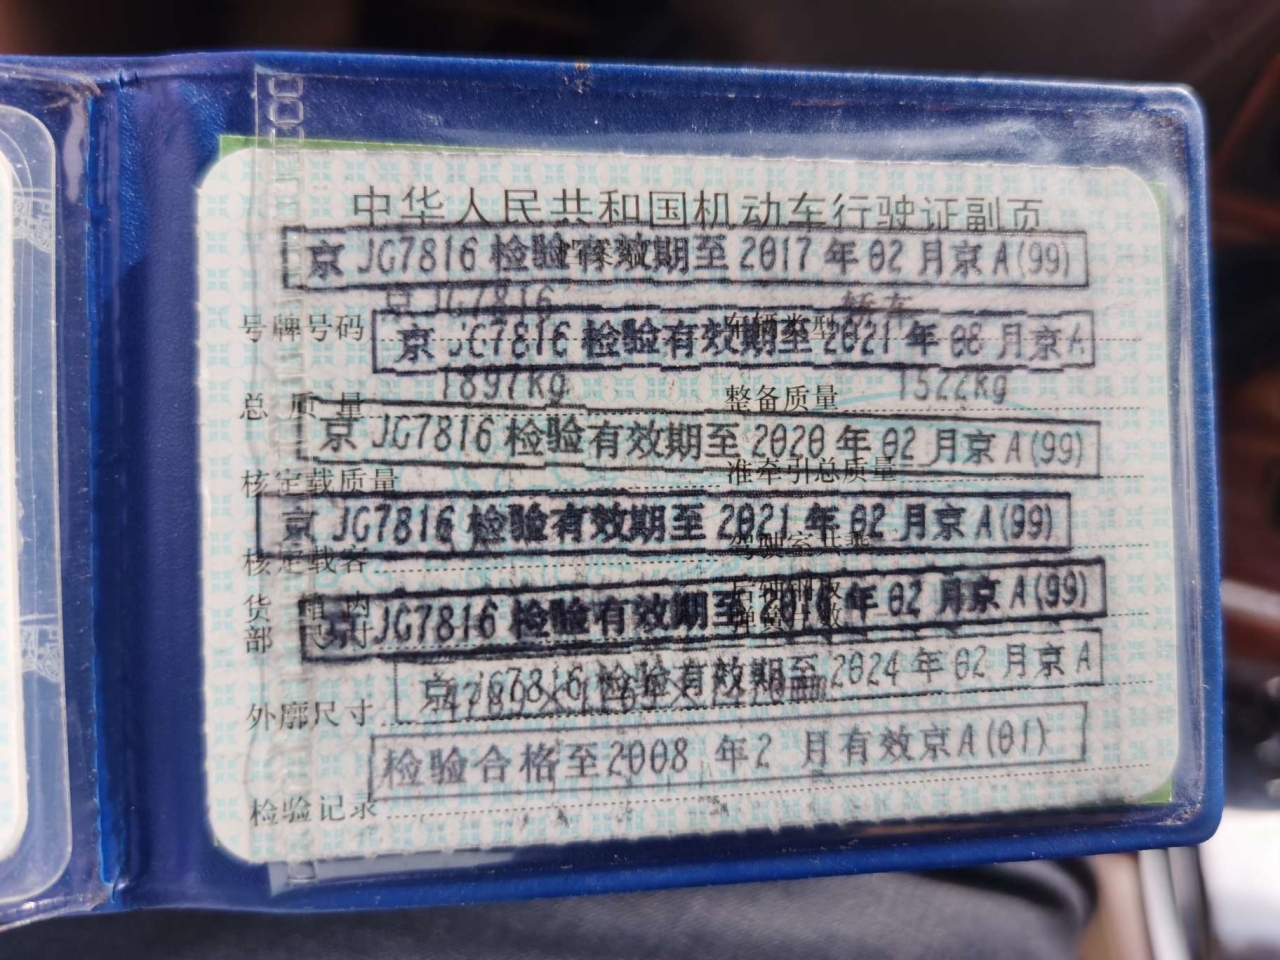 中华人民共和国机动车行驶证副页
京 JG7816 检验有效期至 2017 年 02 月京 A(99)
京JG7816 轿车
号牌号码 车辆类型
京 JG7816 检验有效期至 2021 年 08 月京A
1897kg 1522kg
总 质 量 整备质量
京 JG7816 检验有效期至 2020 年 02 月京 A(99)
核定载质量 准牵引总质量
京 JG7816 检验有效期至 2021 年 02 月京 A(99)
核定载客 驾驶室共乘
货 箱 内 后轴钢板
京 JG7816 检验有效期至 年 02 月京 A(99)
部 尺 寸 弹簧 数
京 JG7816 检验有效期至 2024 年 02 月京 A
外廓尺寸
检验合格至2008 年2 月有效京A(01)
检验记录